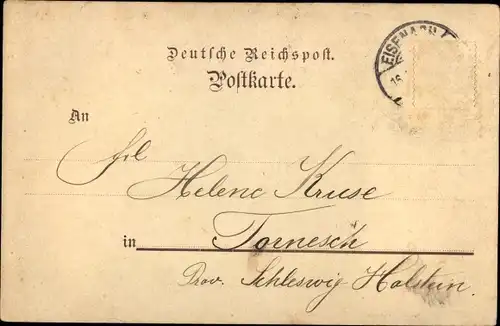 Deutsche Reichspost.
Postkarte.
EISENACH
An
Frl
Helene Kruse
in Tornesch
Prov. Schleswig Holstein